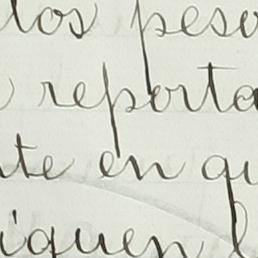 los peso
reporta
te en qu
iquen l